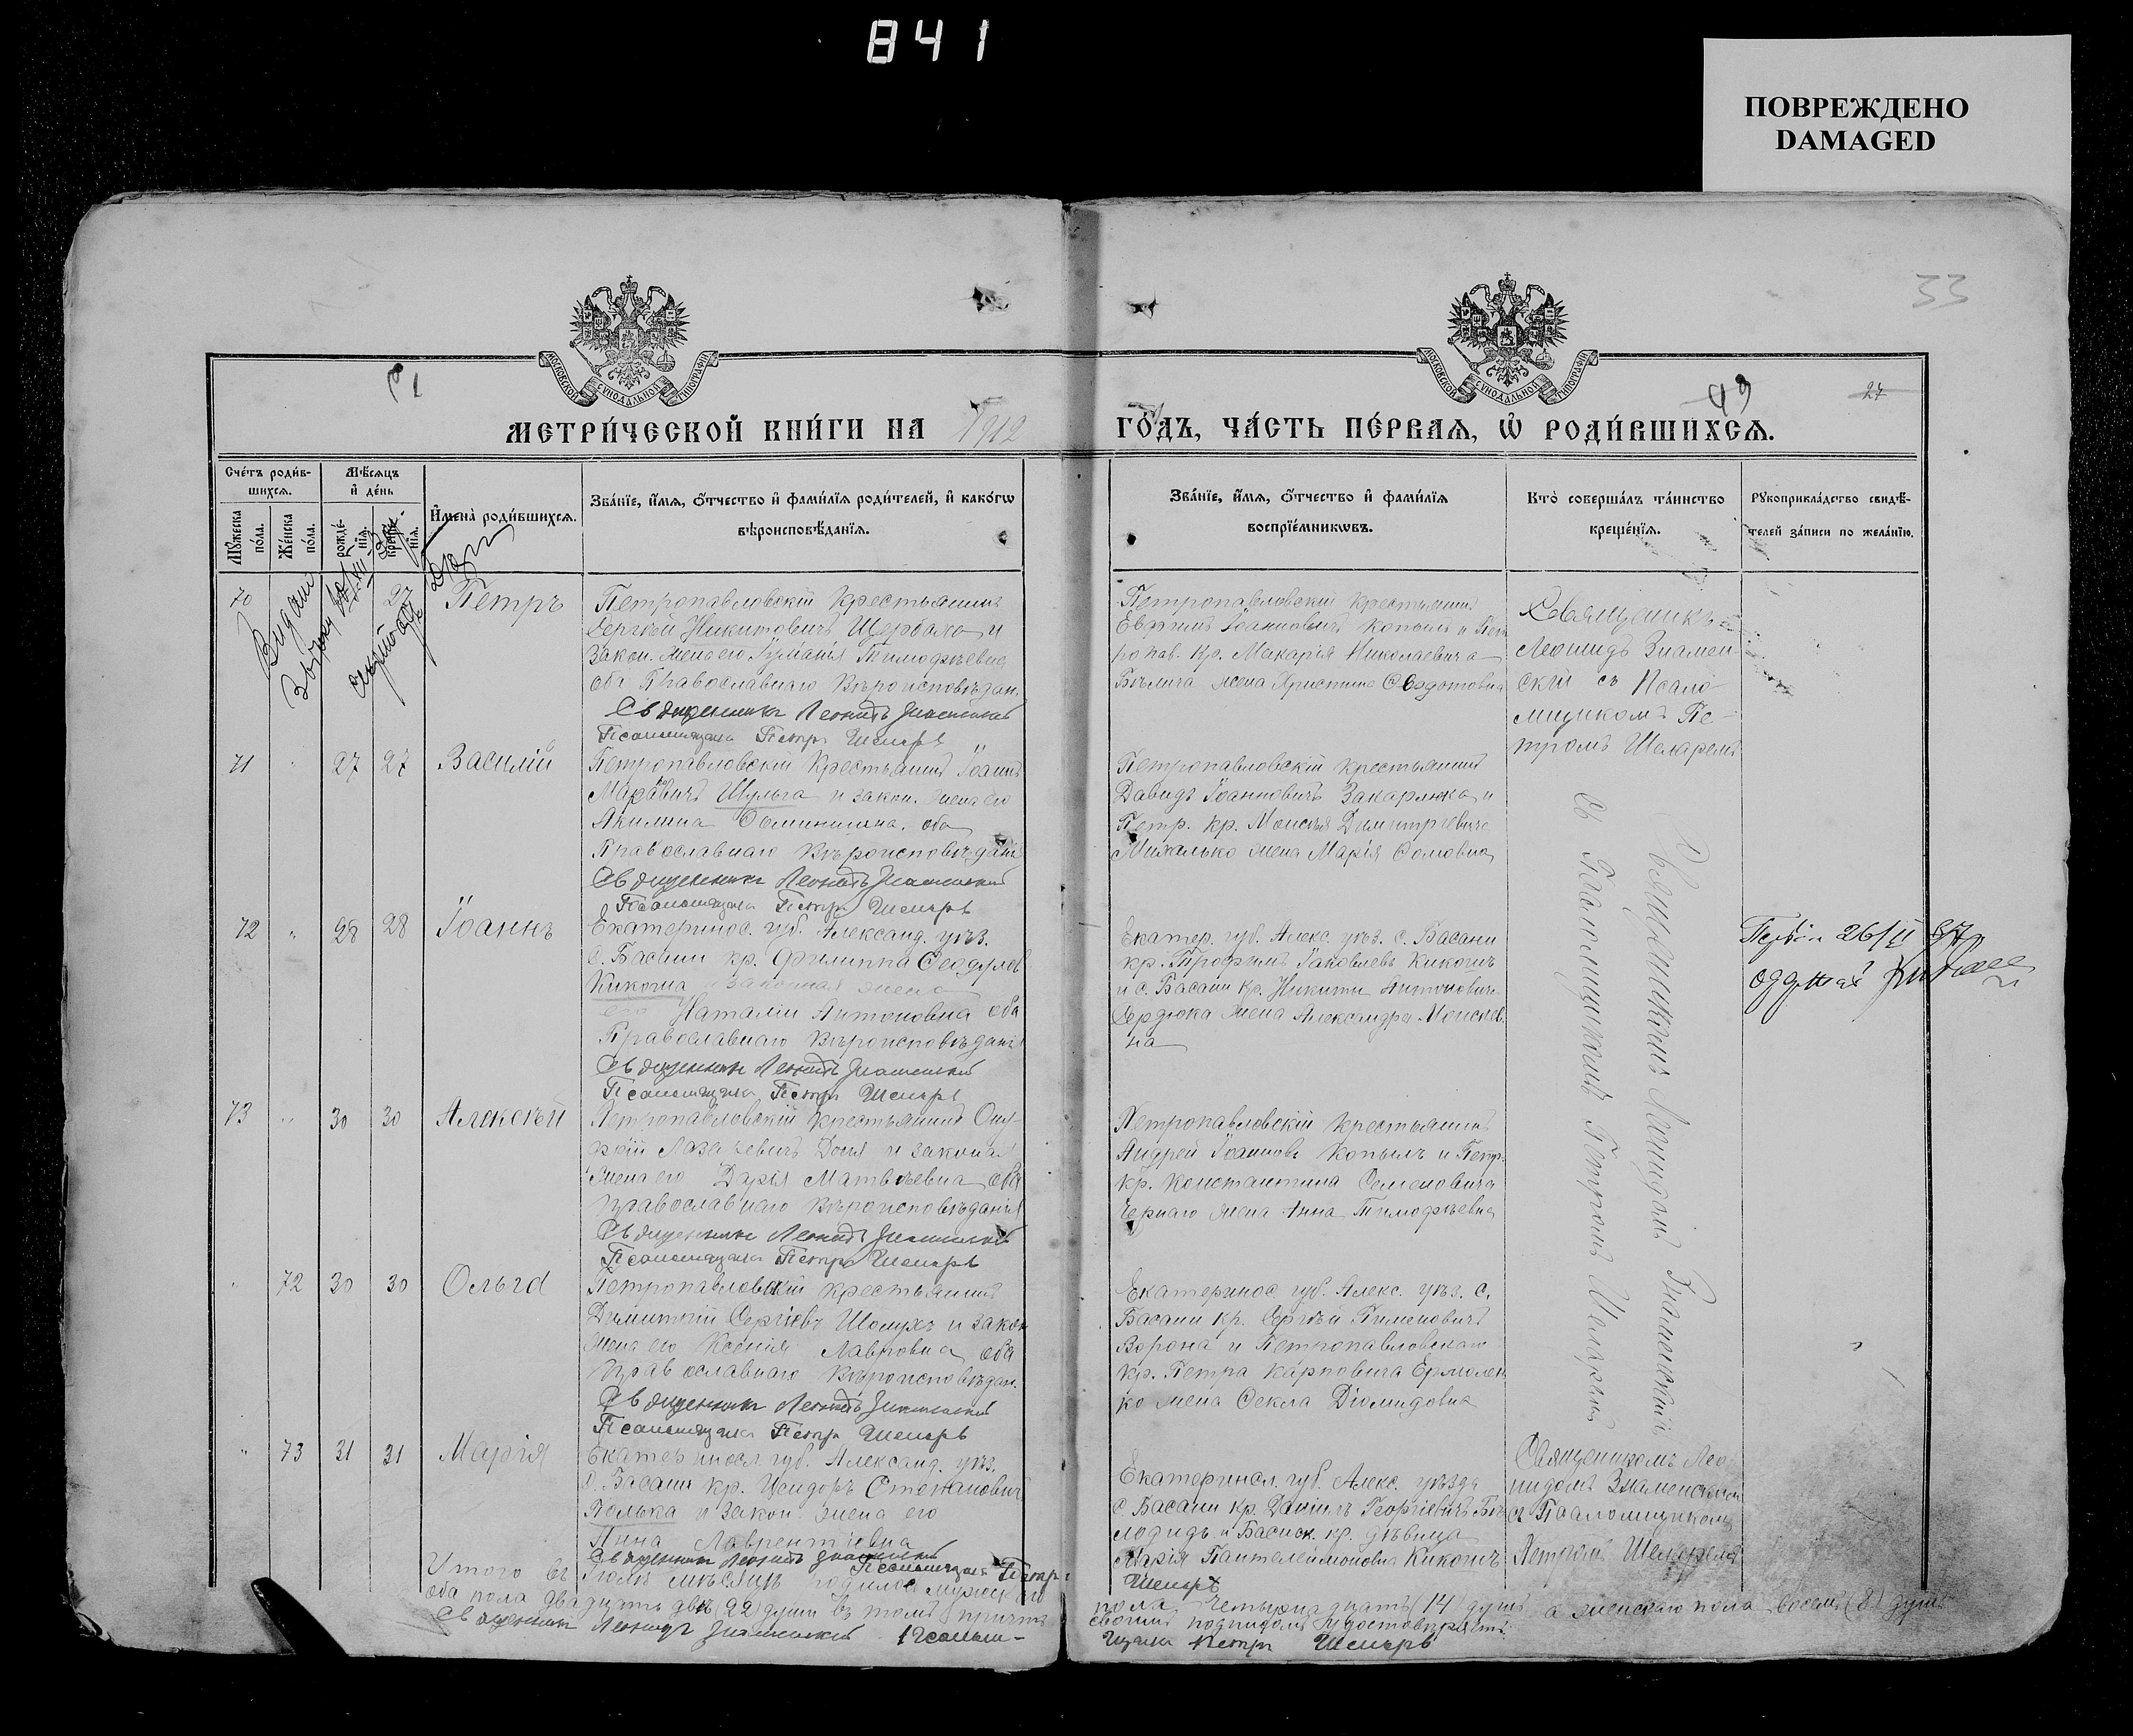 841
ПОВРЕЖДЕНО
DAMAGED
33
МОСКОВСКОЙ СУНОДАЛЬНОЙ ТИПОГРАФІИ
МОСКОВСКОЙ СУНОДАЛЬНОЙ ТИПОГРАФІИ
49
27
МЕТРИ́ЧЕСКОЙ КНИ́ГИ НА 1912 ГО́ДЪ, ЧА́СТЬ ПЕ́РВАЯ, Ѡ҆ РОДИ́ВШИХСЯ.
Сче́тъ роди́в-
шихся.
Мѣ́сяцъ
и҆ де́нь
Мꙋ́жеска
по́ла.
Же́нска
по́ла.
рожде́-
нїя.
креще́-
нїя.
И҆мена̀ роди́вшихся.
Зва́нїе, и҆́мя, ѻ҆́тчество и҆ фами́лїя роди́телей, и҆ како́гѡ
вѣроисповѣ́данїя.
Зва́нїе, и҆́мя, ѻ҆́тчество и҆ фами́лїя
воспрїе́мникѡвъ.
Кто̀ соверша́лъ та́инство
креще́нїя.
Рꙋкоприкла́дство свидѣ́-
телей за́писи по жела́нїю.
70
27
Петръ
Петропавловскій крестьянинъ
Сергѣй Никитовичъ Щербала и
закон. жена его Іуліанія Тимофѣевна
оба Православнаго Вѣроисповѣдан.
Священникъ Леонидъ Знаменскій
Псаломщикъ Петръ Шеларь
Петропавловскій крестьянинъ
Евфимъ Іоанновичъ Копылъ и Пет
ропав. кр. Макарія Николаевича
Бѣлича жена Христина Ѳедотовна
Священикъ
Леонидъ Знамен-
скій съ Псало-
мщикомъ Пе-
тромъ Шеларемъ
71 " 27 27 Василій
Петропавловскій крестьянинъ Іоаннъ
Марковичъ Шульга и закон. жена его
Акилина Ѳоминична. оба
Православнаго Вѣроисповѣданія
Священникъ Леонидъ Знаменскій
Псаломщикъ Петръ Шеларь
Петропавловскій крестьянинъ
Давидъ Іоанновичъ Захарлюка и
Петр. кр. Моисея Димитріевича
Михалько жена Марія Ѳомовна
72 " 28 28 Іоаннъ
Екатеринос. губ. Александ. уѣз.
с. Басани кр. Филиппа Ѳеодулов
Кикоша законная жена
его Наталія Антоновна оба
Православнаго Вѣроисповѣданія
Священникъ Леонидъ Знаменскій
Псаломщикъ Петръ Шеларь
Екатер. губ. Алекс. уѣз. с. Басани
кр. Трофимъ Іаковлевъ Кикошъ
и с. Басани кр. Никиты Антоновича
Сердюка жена Александра Моисеев-
на
26/II 37
73 " 30 30 Алексѣй
Петропавловскій крестьянинъ Ону-
фрій Лазаревичъ Доня и законая
жена его Дарія Матвѣевна оба
православнаго Вѣроисповѣданія
Священникъ Леонидъ Знаменскій
Псаломщикъ Петръ Шеларь
Петропавловскій крестьянинъ
Андрей Іоанновъ Копылъ и Петр.
кр. Константина Семеновича
Чернаго жена Анна Тимофѣевна
Священникомъ Леонидомъ Знаменскимъ
съ Псаломщикомъ Петромъ Шеларемъ
" 72 30 30 Ольга
Петропавловскій крестьянинъ
Димитрій Сергіевъ Шолухъ и закон
жена его Ксенія Лавровна оба
православнаго Вѣроисповѣдан.
Священникъ Леонидъ Знаменскій
Псаломщикъ Петръ Шеларь
Екатеринос. губ. Алекс. уѣз. с.
Басани кр. Сергѣй Пименовичъ
Ворона и Петропавловскаго
кр. Петра Карповича Ермолен
ко жена Ѳекла Діомидовна
" 73 31 31 Марія
Екатериносл. губ. Александ. уѣз.
с. Басани кр. Исидоръ Стефановичъ
Яцлька и закон. жена его
Анна Лаврентіевна
Священникъ Леонидъ Знаменскій
Псаломщикъ Петръ
Шеларь
Екатеринсл. губ. Алекс. уѣзда
с. Басани кр. Даніилъ Георгіевичъ Бѣ
лодидъ и Басанск. кр. дѣвица
Марія Пантелеимоновна Кикошъ
Священикомъ Лео-
нидомъ Знаменскимъ
съ Псаломщикомъ
Петромъ Шеларемъ
Итого въ Іюлѣ мѣсяцѣ родилось мужескаго пола четырнадцать (14) душъ а женскаго пола восемь (8) душъ
оба пола двадцать двѣ (22) души въ томъ причтъ своимъ подписомъ удостовѣряетъ.
Священникъ Леонидъ Знаменскій Псаломщикъ Петръ Шеларь